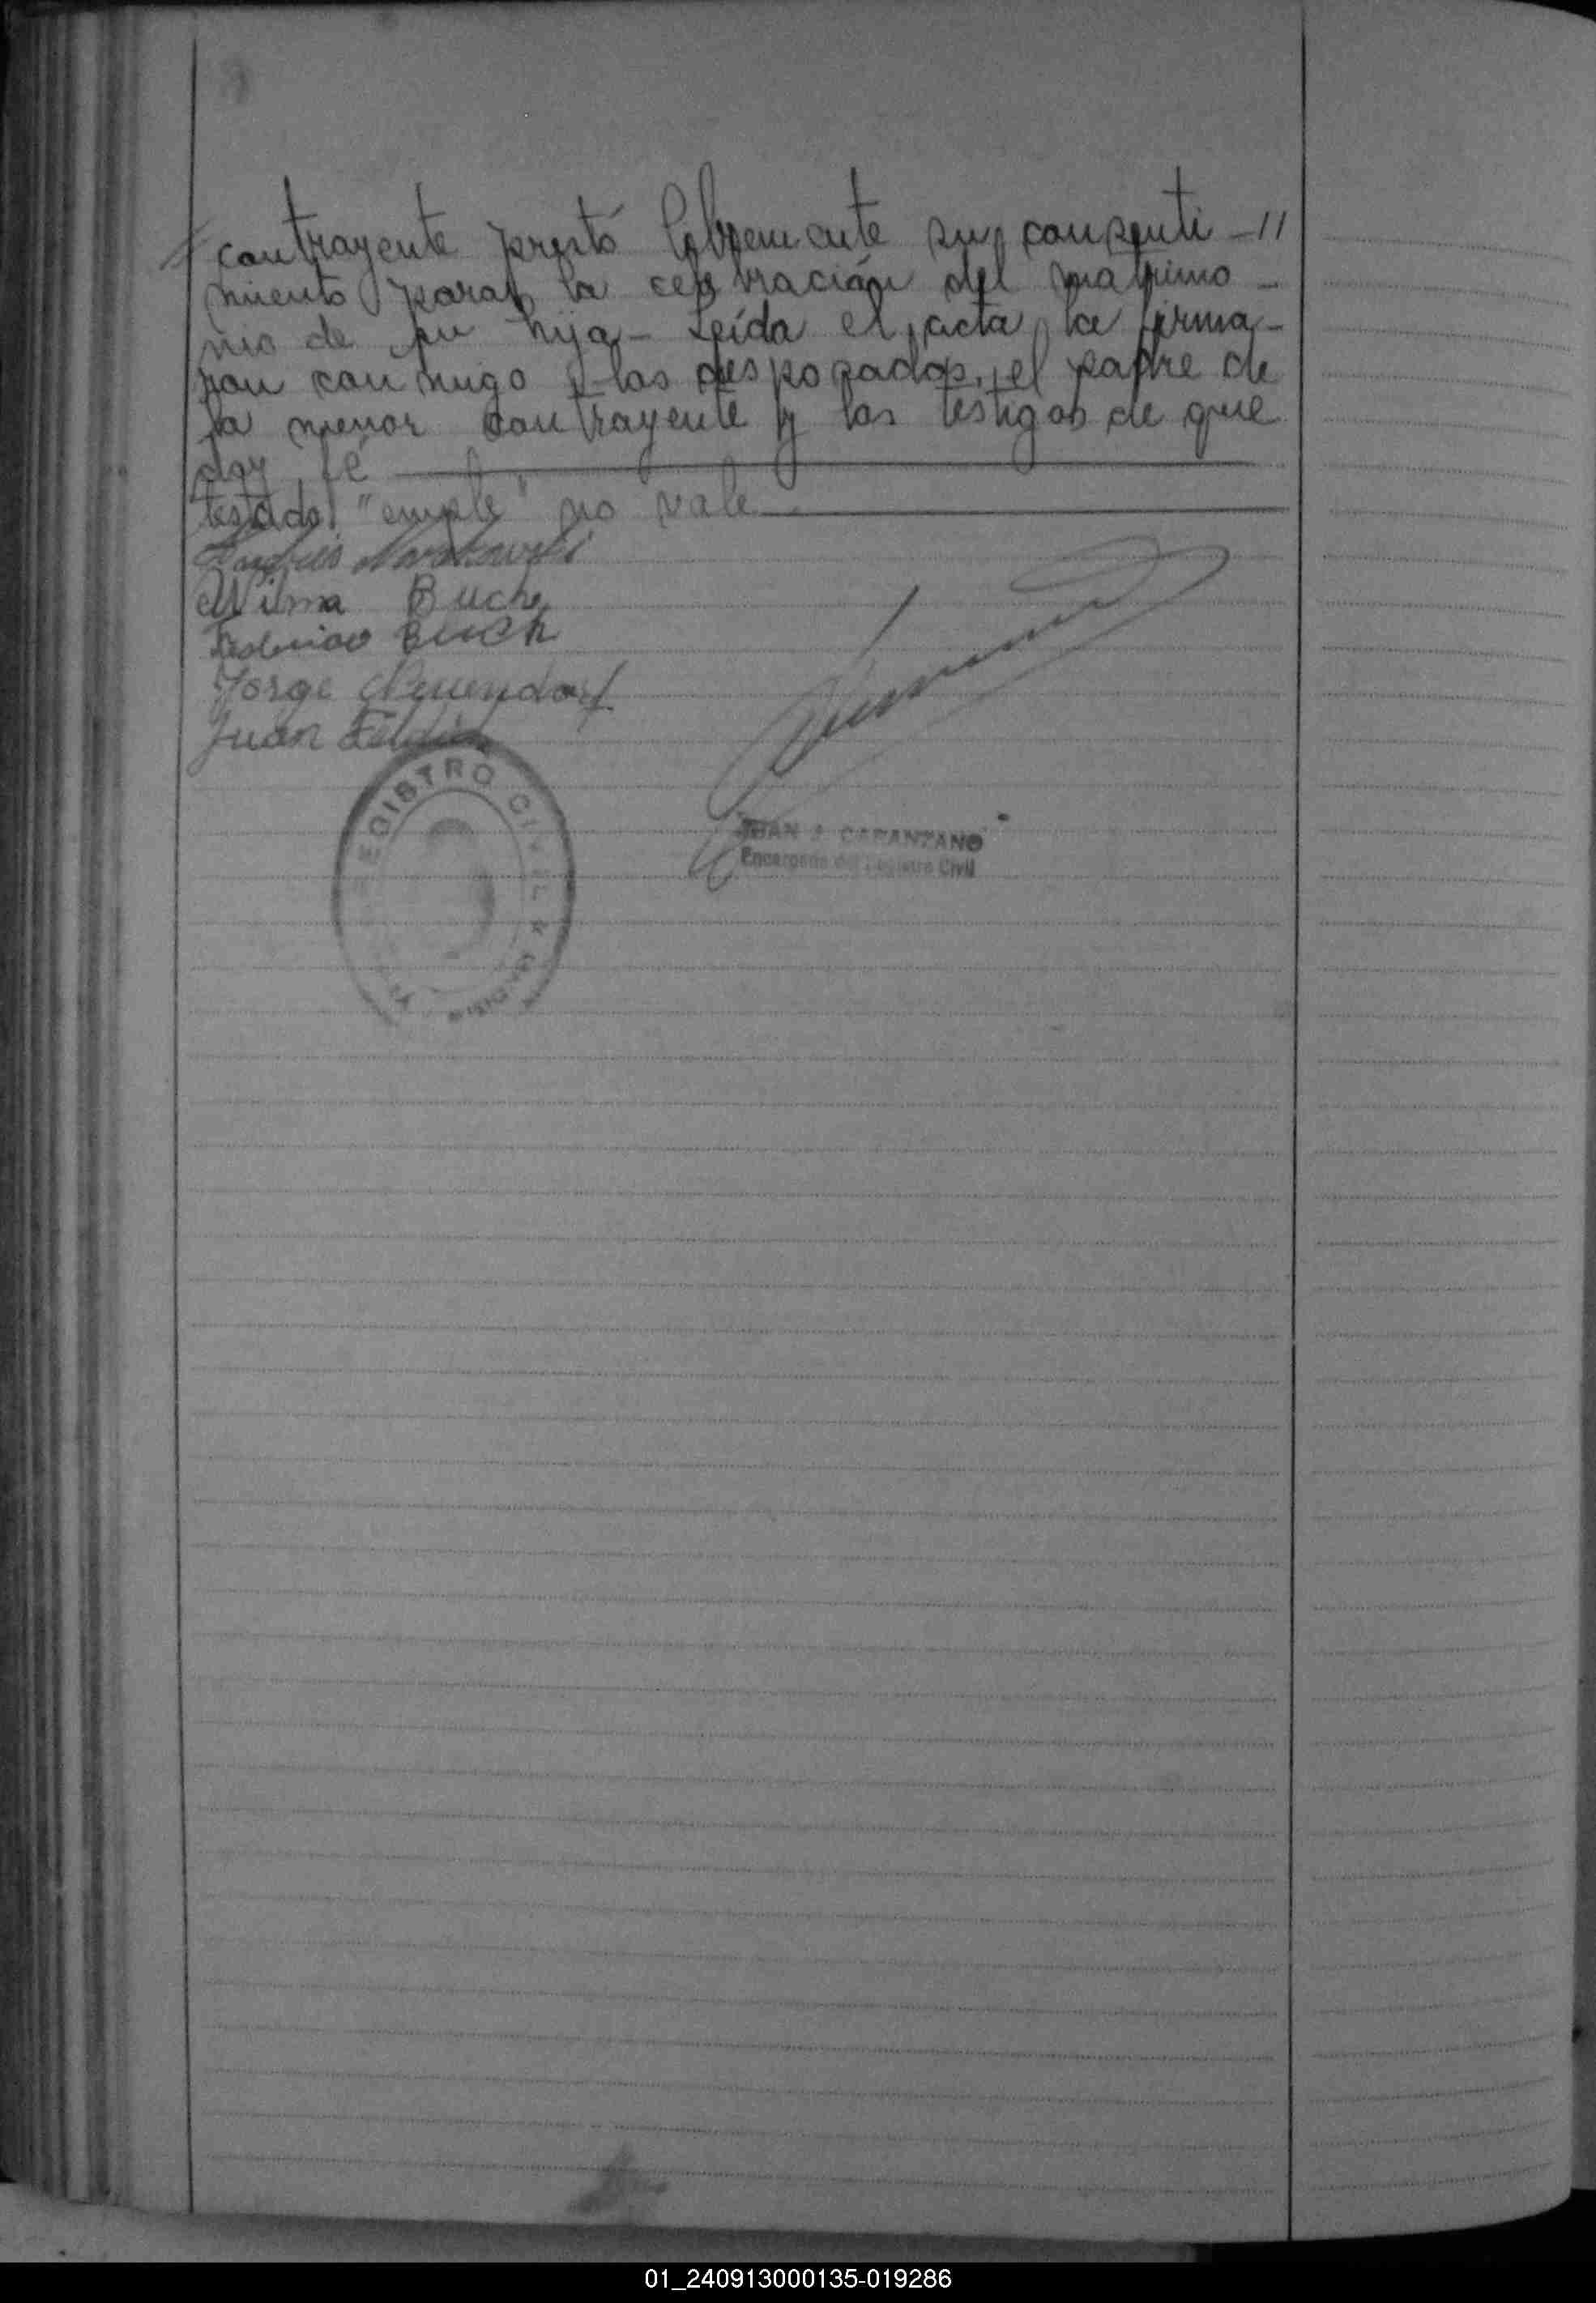 contrayente prestó libremente su consenti-//
miento para la celebración del matrimo-
nio de su hija- Leída el acta, la firma-
ron conmigo, los desposados, el padre de
la menor contrayente y los testigos de que
doy fé
testado "emple" no vale
Andrés
Wilma Buch
Federico Buch
Jorge Neuendorf
Juan
REGISTRO CIVIL
JUAN J. CAPANZANO
Encargado del Registro Civil
01_240913000135-019286